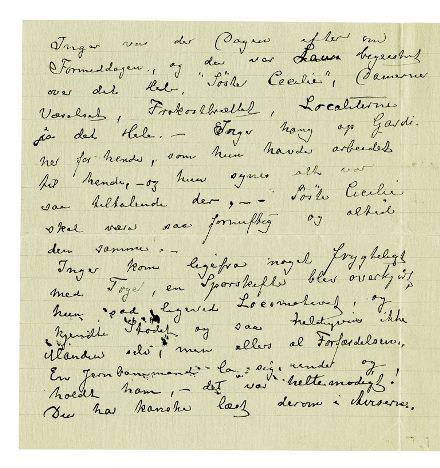 Inger var der Dagen efter om
Formiddagen, og der var begejstret
over det Hele. "Søste Cecilie", Damerne
Værelset, Frokostbrættet, Localiterne
ja det Hele. — Inger hang op Gardi-
ner for hende, som hun havde arbeidet
til hende, — og hun synes alt var
saa tiltalende der, — — Søste Cecilie
skal være saa fornuftig og altid
den samme. —
Inger kom ligefra noget frygteligt
med Toget, en Sporskifte blev overkjört,
hun sad ligeved Locomotivet, og
kjendte Stödet og saa heldigvis ikke
Manden selv, men allers al Forfærdelsen,
En Jernbanemand la sig under og
holdt ham, — det var heltemodigt!
Du har kanske læst derom i Aviserne.